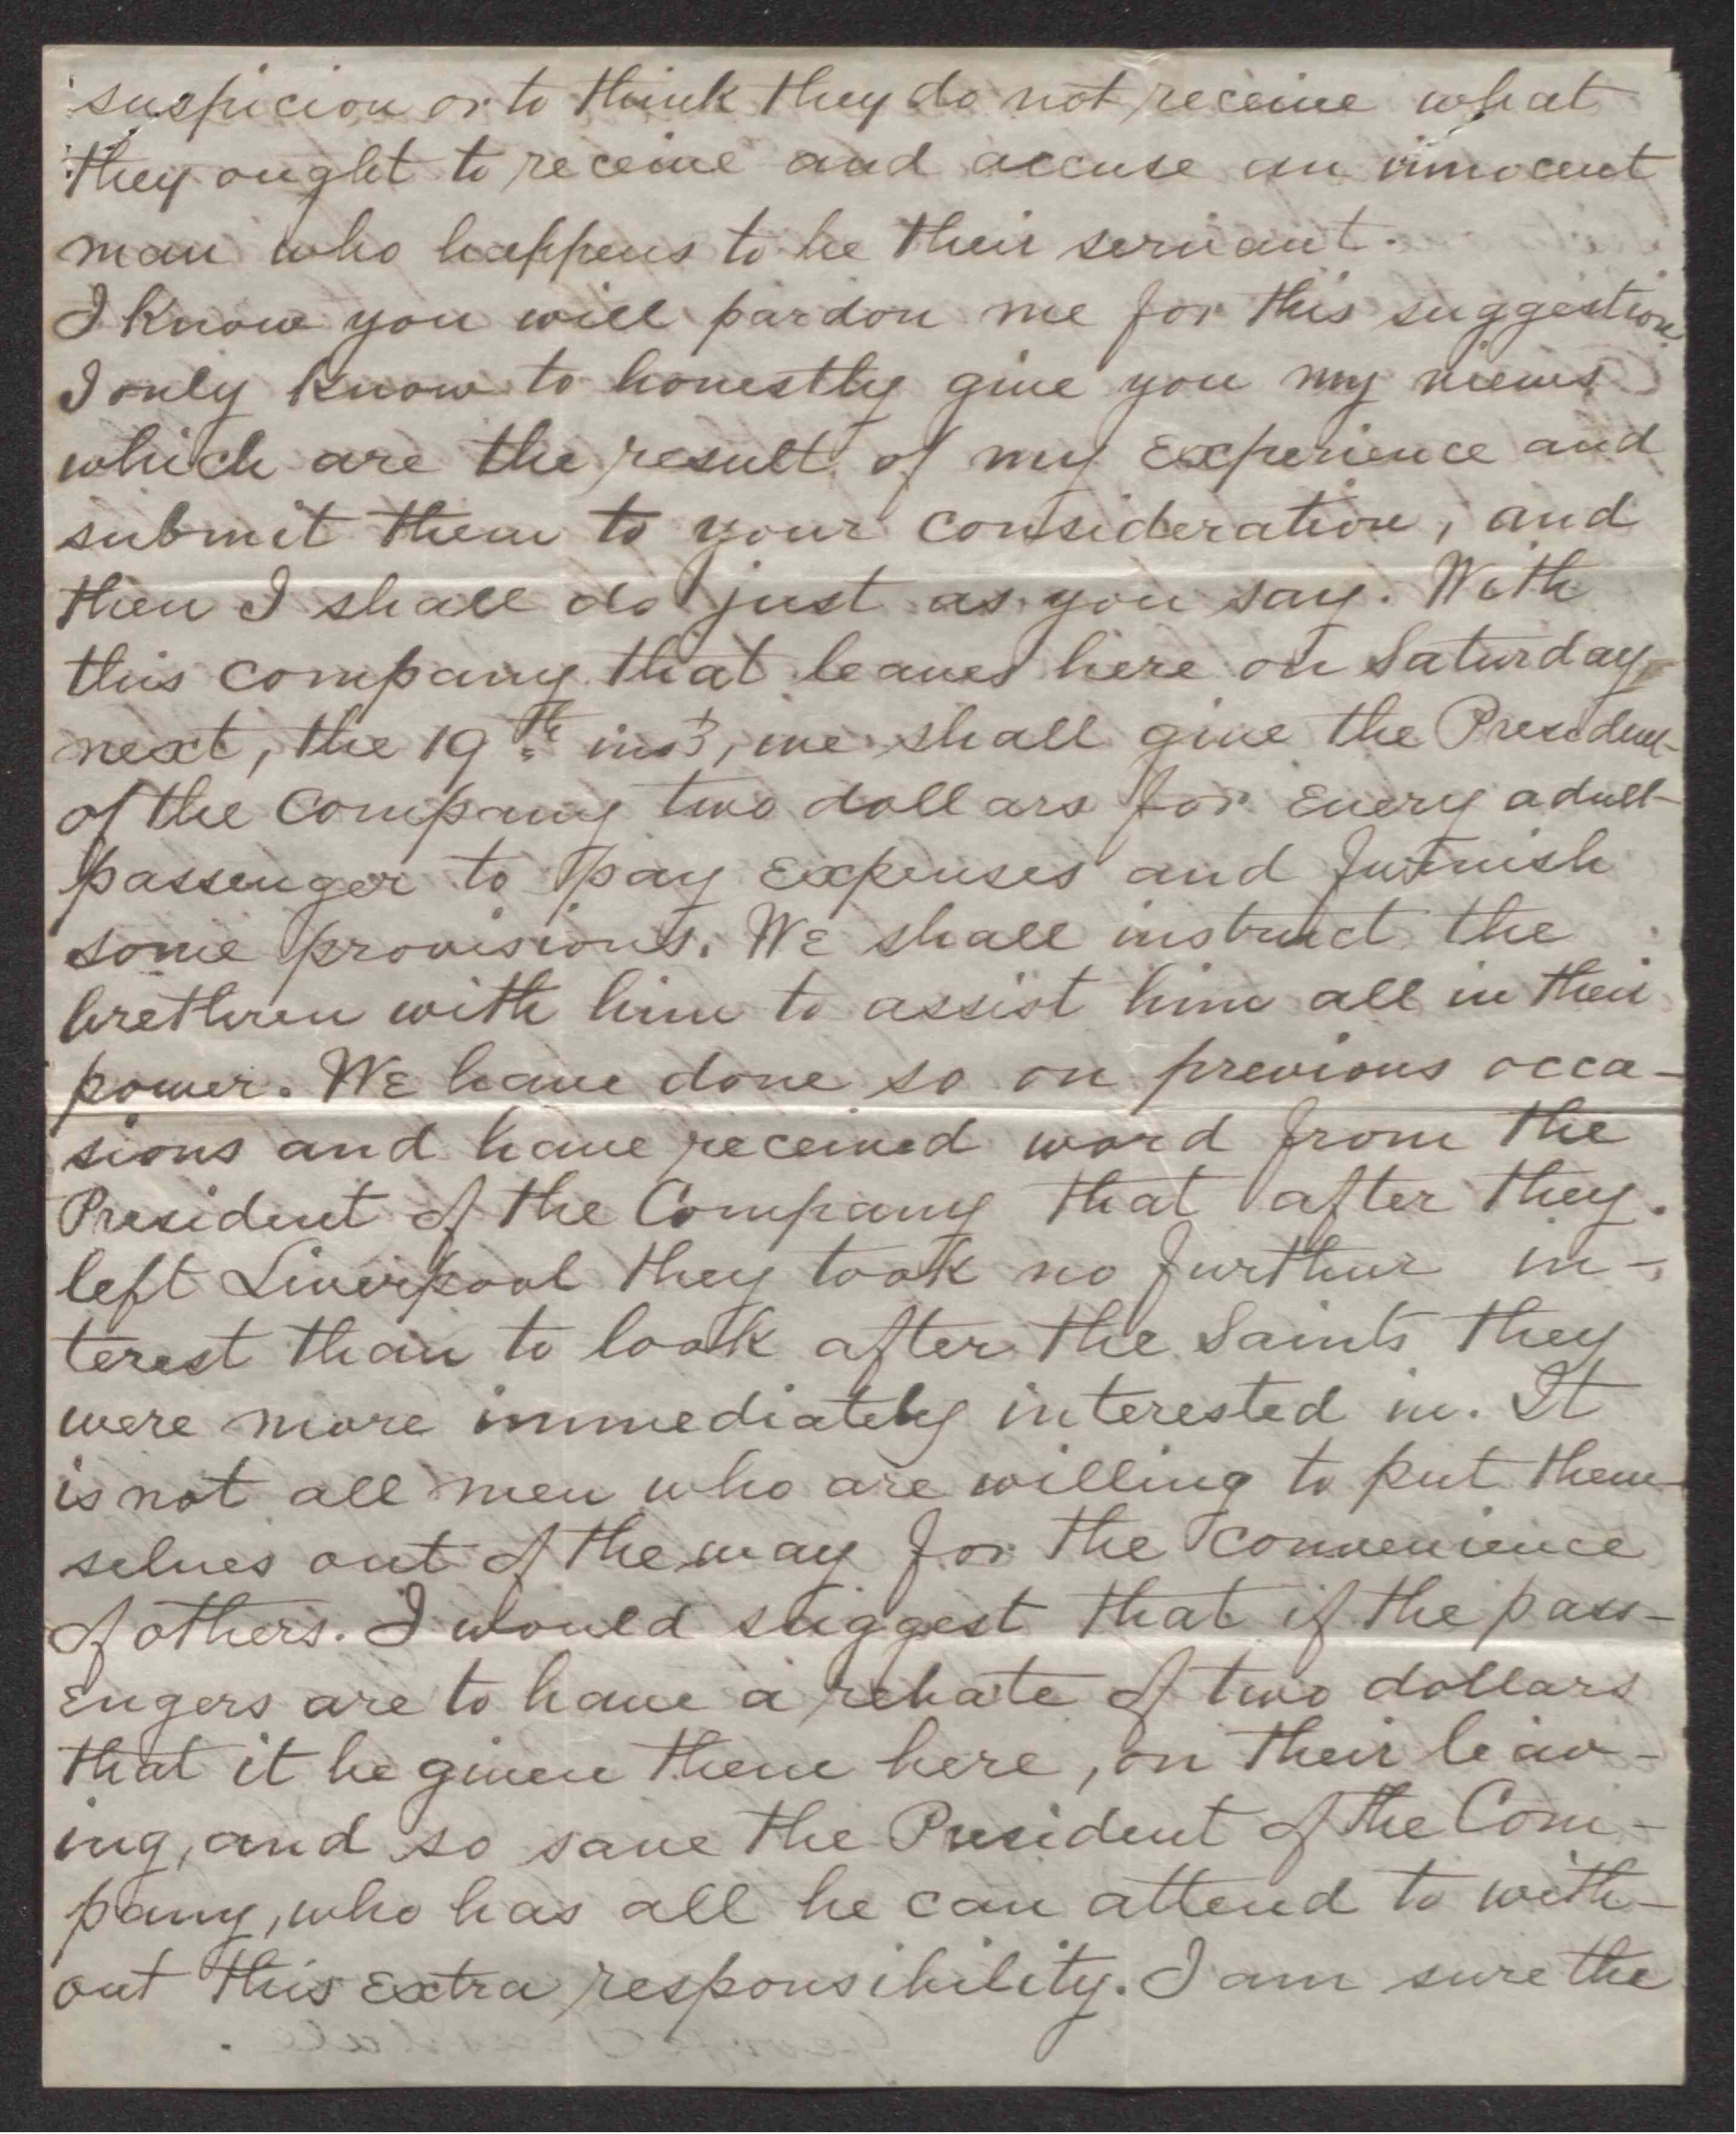 suspicion or to think they do not receive what
they ought to receive and accuse an innocent
man who happens to be their servant.
I know you will pardon me for this suggestion.
I only know to honestly give you my views
which are the result of my experience and
submit them to your consideration, and
then I shall do just as you say. With
this company that leaves here on Saturday
next, the 19th inst, we shall give the President
of the Company two dollars for every adult
passenger to pay expenses and furnish
some provisions. We shall instruct the
brethren with him to assist him all in their
power. We have done so on previous occa-
sions and have received word from the
President of the Company that after they
left Liverpool they took no further in-
terest than to look after the Saints they
were more immediately interested in. It
is not all men who are willing to put them-
selves out of the way for the convenience
of others. I would suggest that if the pass-
engers are to have a rebate of two dollars
that it be given them here, on their leav-
ing, and so save the President of the Com-
pany, who has all he can attend to with-
out this extra responsibility. I am sure the